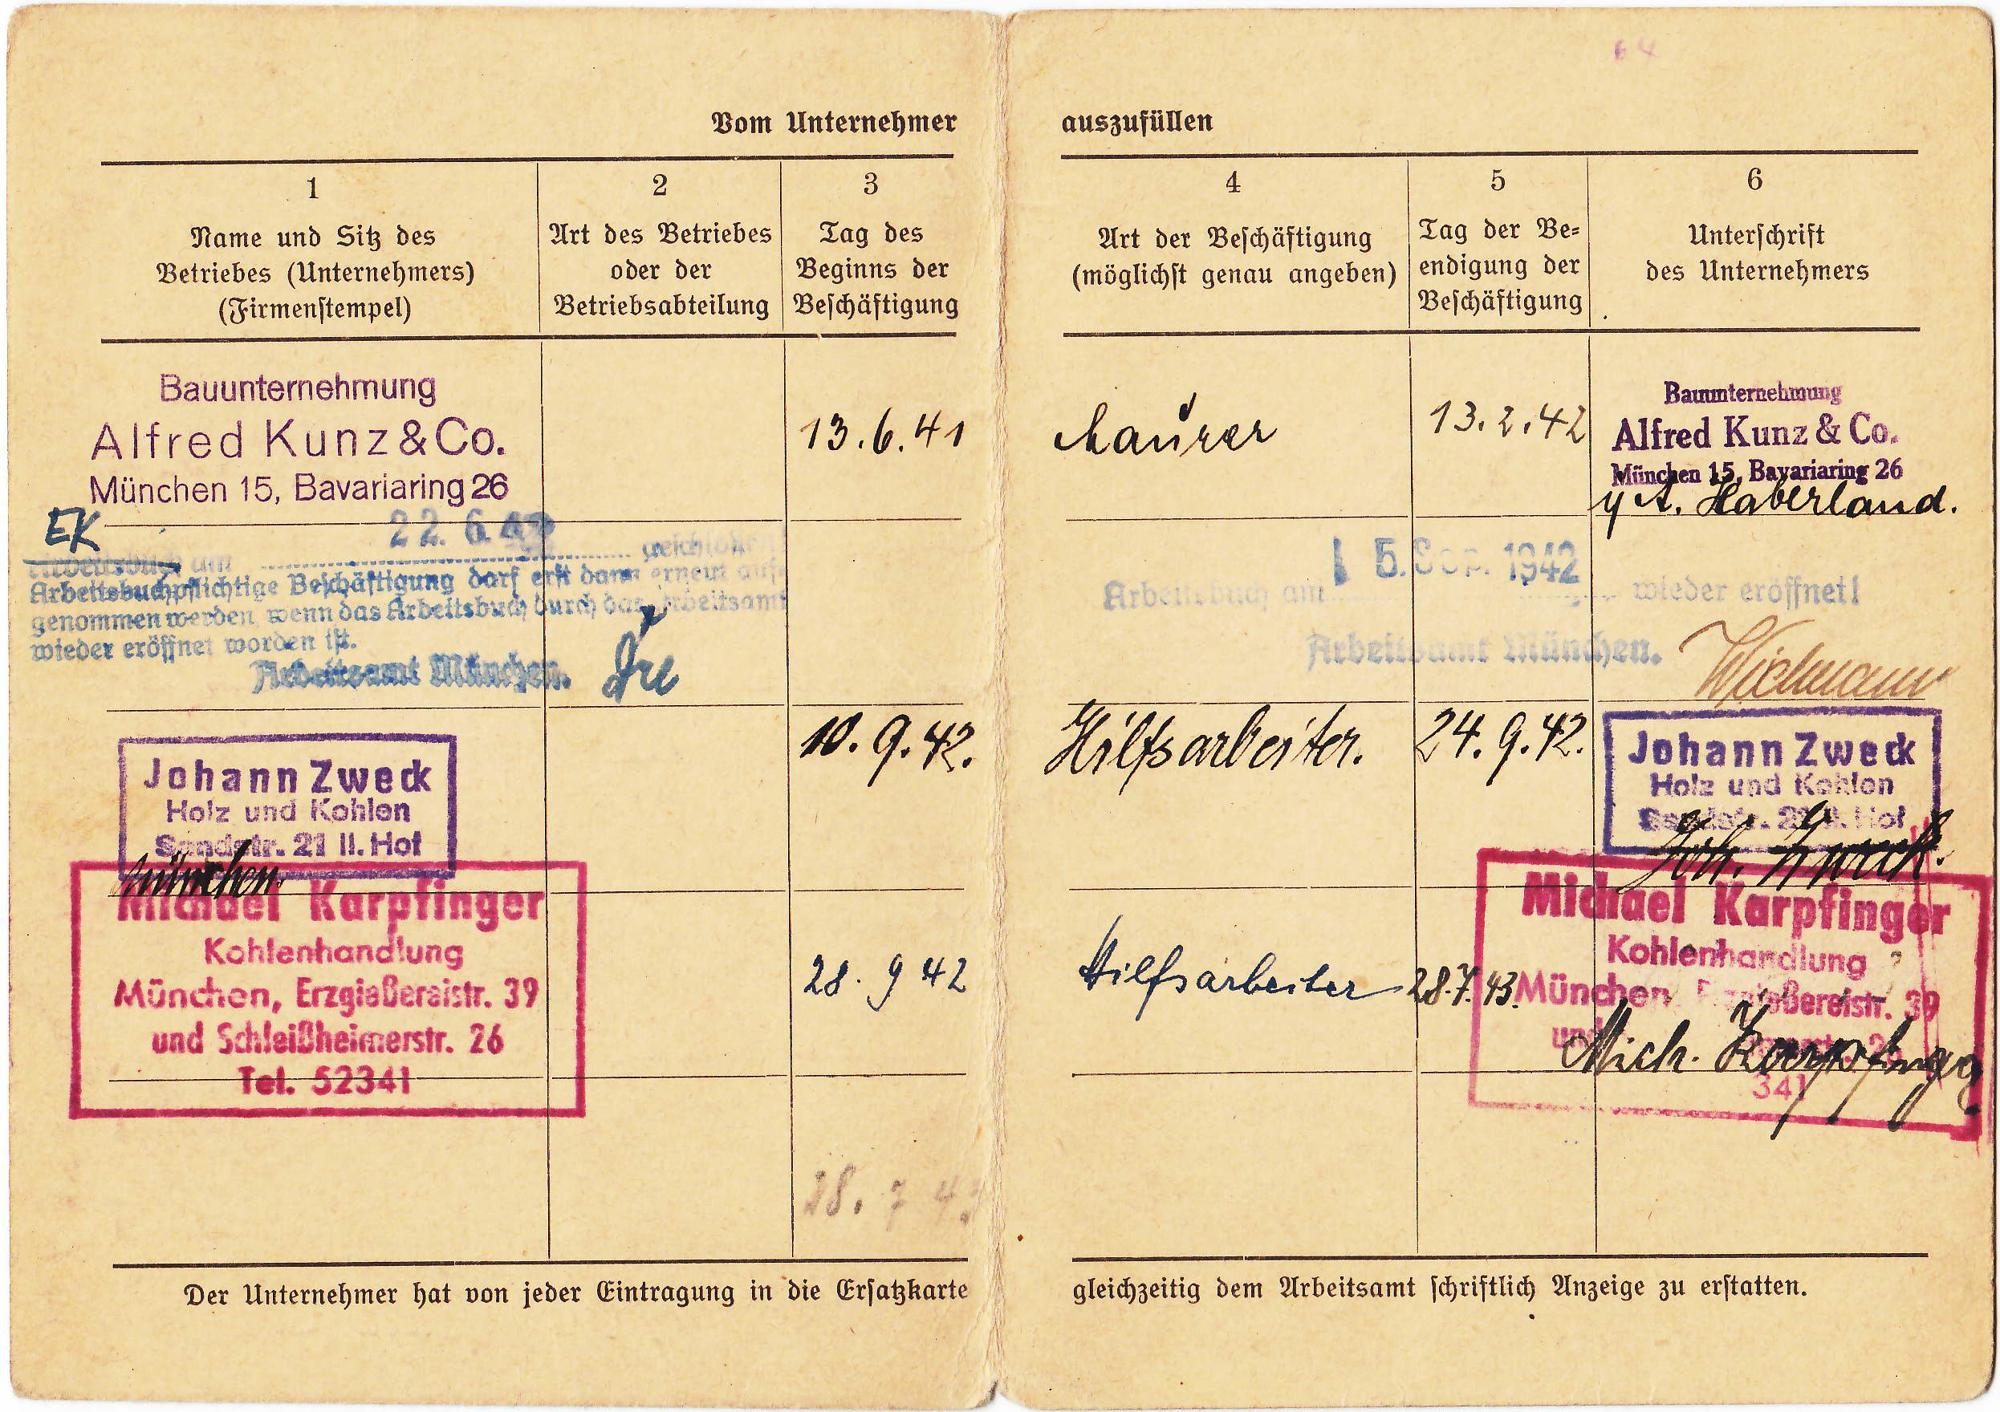 64
Vom Unternehmer auszufüllen
1
Name und Sitz des
Betriebes (Unternehmers)
(Firmenstempel)
2
Art des Betriebes
oder der
Betriebsabteilung
3
Tag des
Beginns der
Beschäftigung
4
Art der Beschäftigung
(möglichst genau angeben)
5
Tag der Be=
endigung der
Beschäftigung
6
Unterschrift
des Unternehmers
Bauunternehmung
Alfred Kunz & Co.
München 15, Bavariaring 26
13.6.41
Maurer
13.2.42
Bauunternehmung
Alfred Kunz & Co.
München 15, Bavariaring 26
Haberland.
EK
22. 6. 42
Arbeitsbuch am geschlossen!
Arbeitsbuchpflichtige Beschäftigung darf erst dann erneut auf-
genommen werden, wenn das Arbeitsbuch durch das Arbeitsamt
wieder eröffnet worden ist.
Arbeitsamt München.
5. Sep. 1942
Arbeitsbuch am wieder eröffnet!
Arbeitsamt München.
Johann Zweck
Holz und Kohlen
Sandstr. 21 II. Hof
München.
10. 9. 42.
Hilfsarbeiter.
24. 9. 42.
Johann Zweck
Holz und Kohlen
Sandstr. 21 II. Hof
Joh. Zweck.
Michael Karpfinger
Kohlenhandlung
München, Erzgießereistr. 39
und Schleißheimerstr. 26
Tel. 52341
28. 9 42
Hilfsarbeiter
28.7.43.
Michael Karpfinger
Kohlenhandlung
München Erzgießereistr. 39
und 26
341
Mich. Karpfinger
28. 7 43
Der Unternehmer hat von jeder Eintragung in die Ersatzkarte gleichzeitig dem Arbeitsamt schriftlich Anzeige zu erstatten.